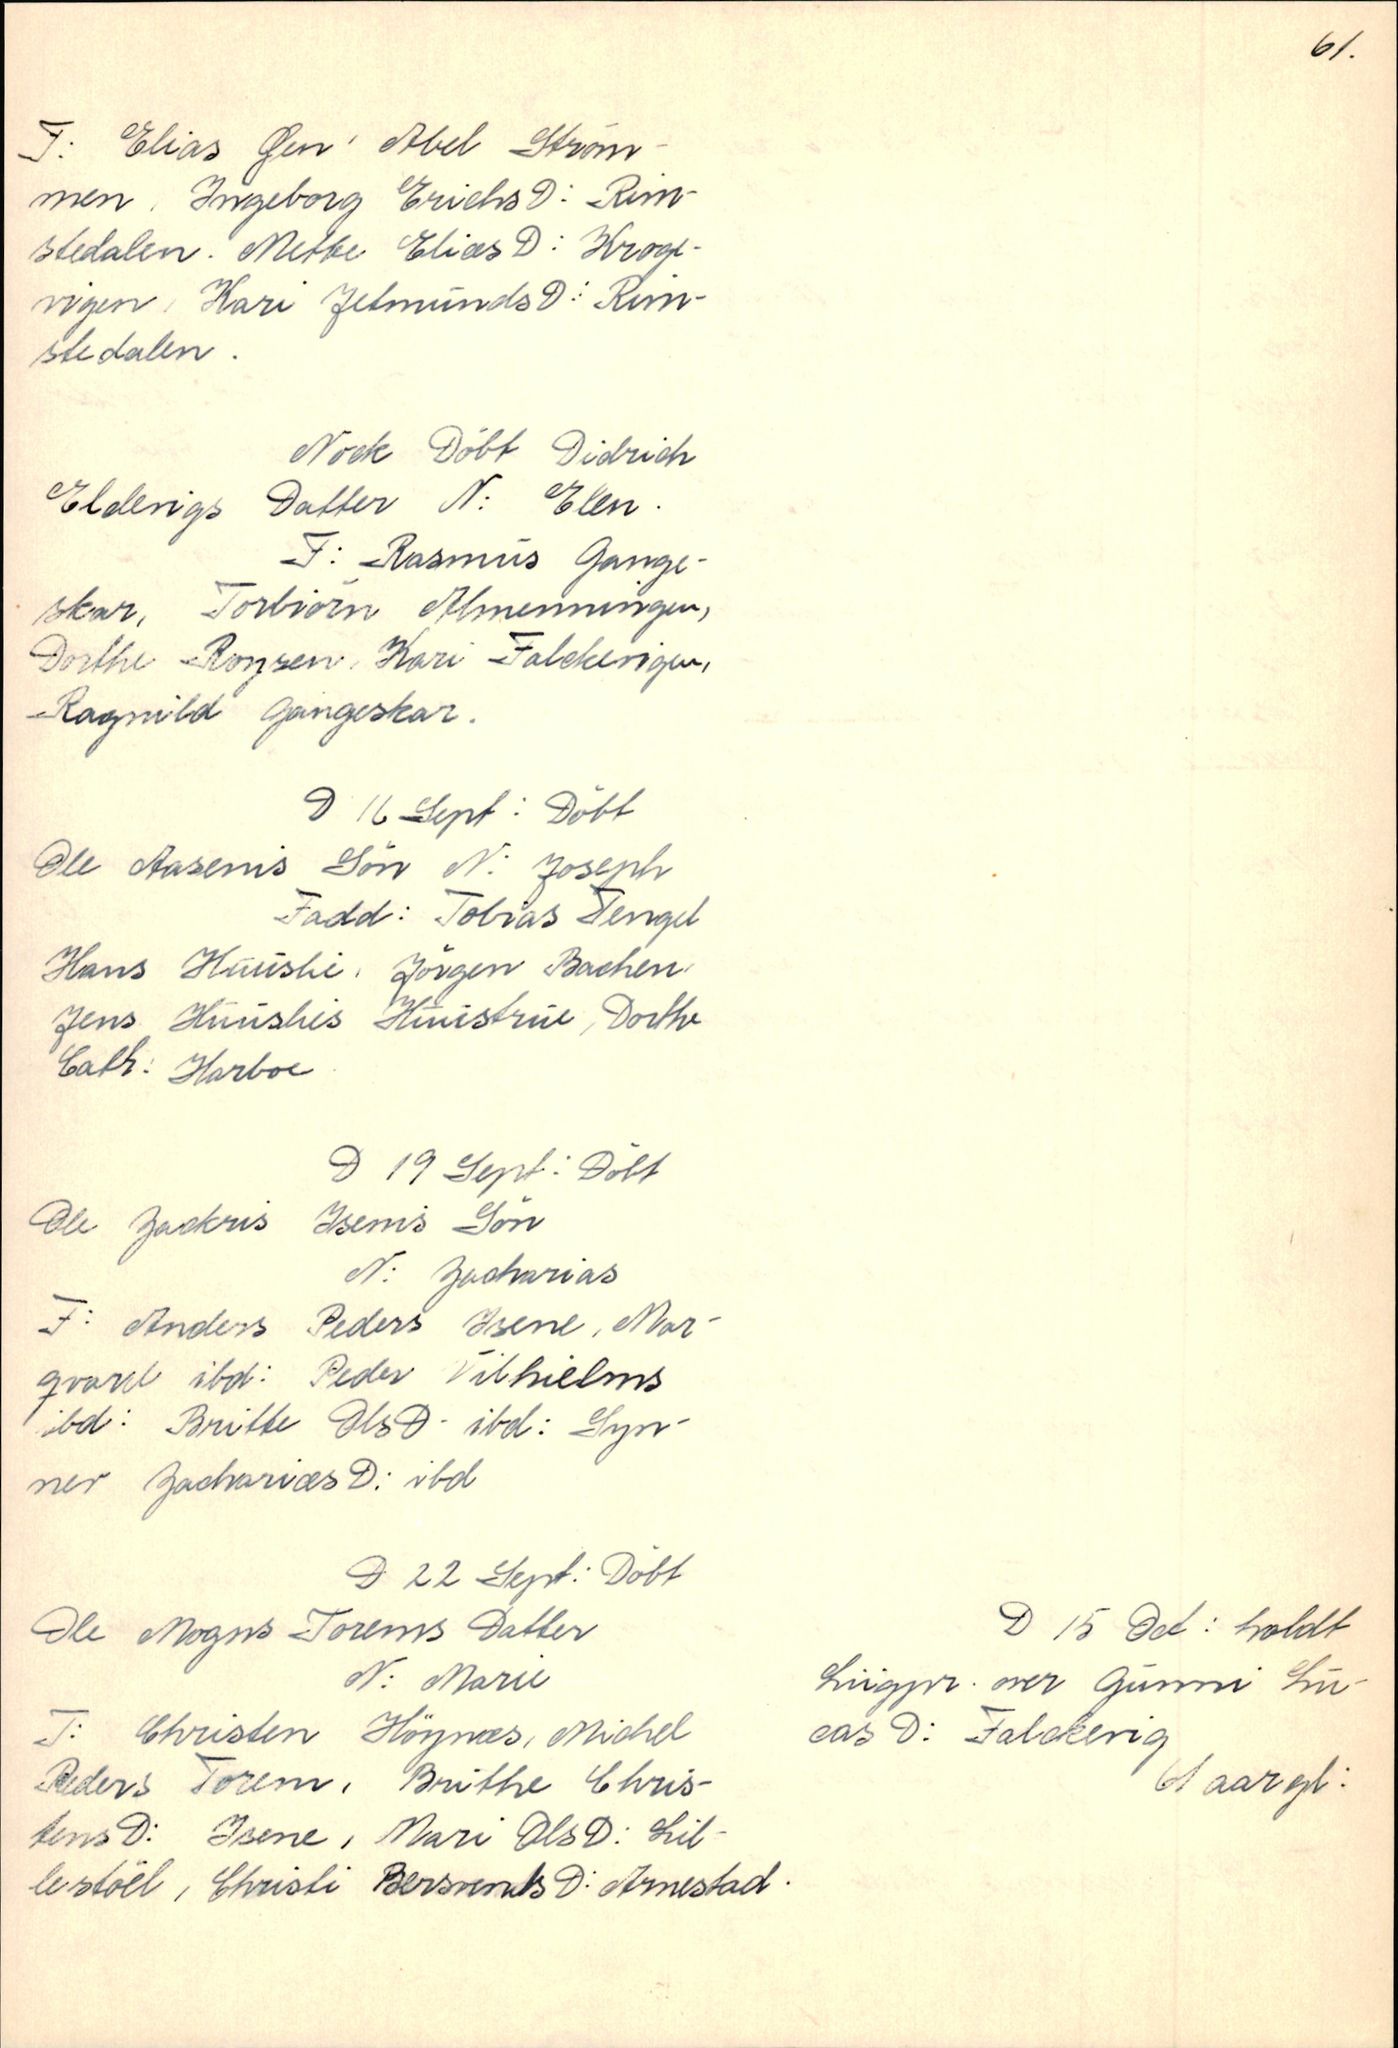 61.
F: Elias Øen, Abel Ström-
men, Ingeborg Erichs D: Rim-
stedalen. Mette Elias D: Kroge-
vigen, Kari Jetmunds D: Rim-
stedalen.
Nock Döbt Didrich
Eldevigs Datter N: Elen.
F: Rasmus Gange-
skar, Torbiörn Almenningen,
Dorthe Roysen, Kari Falckevigen,
Ragnild Gangeskar.
D 16 Sept: Döbt
Ole Aasenis Sön N: Joseph
Fadd: Tobias Tengel
Hans Kuuslie, Jörgen Bachen,
Jens Kuuslies Huustrue, Dorthe
Cath: Harboe
D 19 Sept: Döbt
Ole Zackris Isenis Sön
N: Zacharias
F: Anders Peders Isene, Mar-
qvard ibd: Peder Vilhielms
ibd: Britte Ols D- ibd: Syn-
ner Zacharias D: ibd
D 22 Sept: Döbt
Ole Mogns Torems Datter
N: Marie
F: Christen Höynæs, Michel
Peders Torem, Brithe Chris-
tens D: Isene, Mari Ols D: Lil-
lestöel, Christi Bersvends D: Arnestad.
D 15 Oct: holdt
Liigpr. over Gunni Lu-
cas D: Falckevig
61 aar gl: